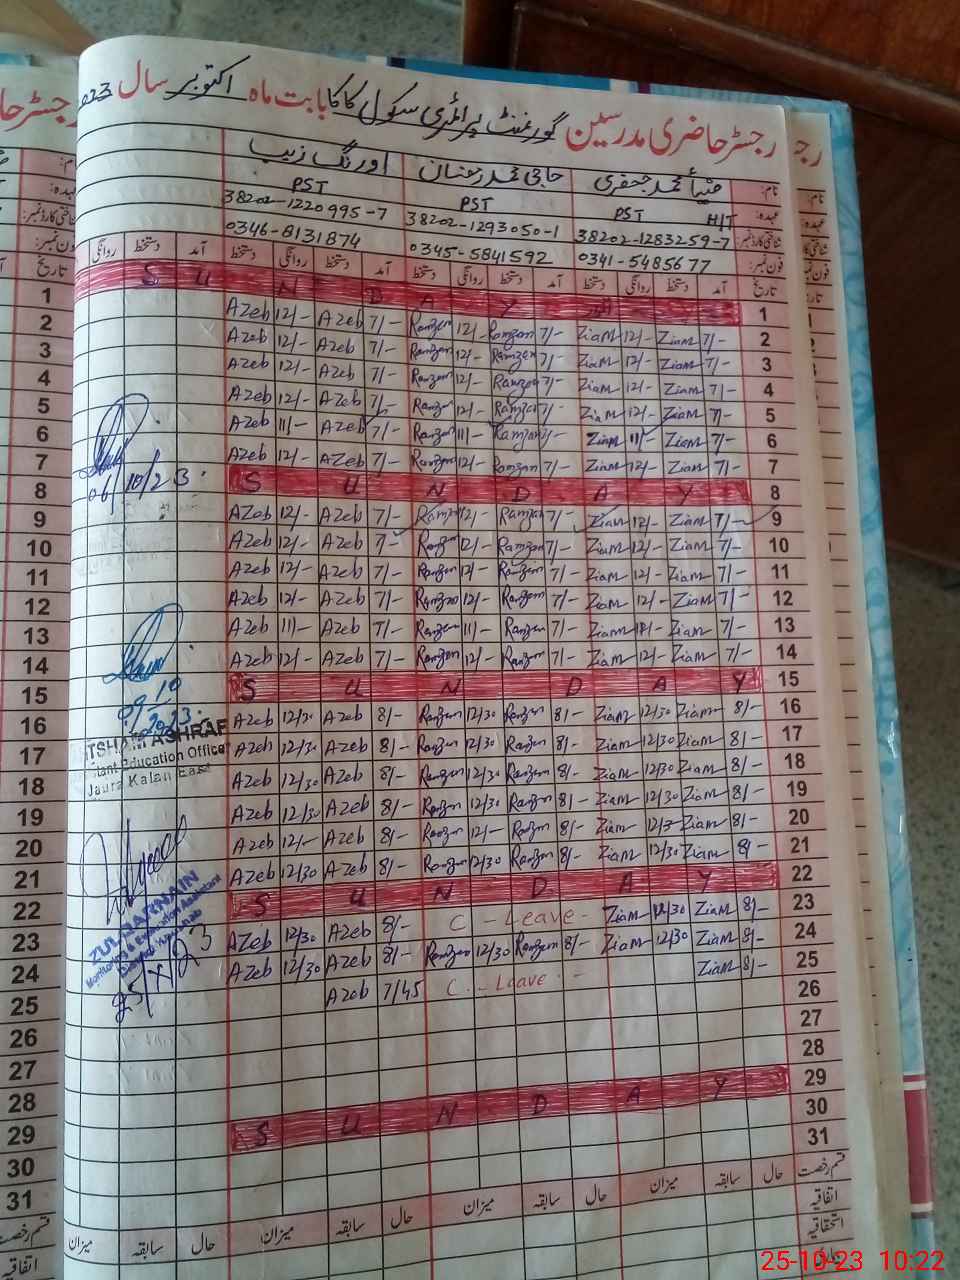 رجسٹر حاضری مدرسین گورنمنٹ پرائمری سکول کاکا بابت ماہ اکتوبر سال 2023
نام: ضیاء محمد جعفری حاجی محمد رمضان اورنگ زیب
عہدہ: PST H/T PST PST
شناختی کارڈ نمبر: 38202-1283259-7 38202-1293050-1 38202-1220995-7
فون نمبر: 0341-5485677 0345-5841592 0346-8131874
تاریخ آمد دستخط روانگی دستخط آمد دستخط روانگی دستخط آمد دستخط روانگی دستخط آمد دستخط روانگی
1 S U N D A Y 1
2 Azeb 12/- Azeb 7/- Ramzan 12/- Ramzan 7/- Ziam 12/- Ziam 7/- 2
3 Azeb 12/- Azeb 7/- Ramzan 12/- Ramzan 7/- Ziam 12/- Ziam 7/- 3
4 Azeb 12/- Azeb 7/- Ramzan 12/- Ramzan 7/- Ziam 12/- Ziam 7/- 4
5 Azeb 12/- Azeb 7/- Ramzan 12/- Ramzan 7/- Ziam 12/- Ziam 7/- 5
6 Azeb 11/- Azeb 7/- Ramzan 11/- Ramzan 7/- Ziam 11/- Ziam 7/- 6
7 Azeb 12/- Azeb 7/- Ramzan 12/- Ramzan 7/- Ziam 12/- Ziam 7/- 7
06/10/23.
8 S U N D A Y 8
9 Azeb 12/- Azeb 7/- Ramzan 12/- Ramzan 7/- Ziam 12/- Ziam 7/- 9
10 Azeb 12/- Azeb 7/- Ramzan 12/- Ramzan 7/- Ziam 12/- Ziam 7/- 10
11 Azeb 12/- Azeb 7/- Ramzan 12/- Ramzan 7/- Ziam 12/- Ziam 7/- 11
12 Azeb 12/- Azeb 7/- Ramzan 12/- Ramzan 7/- Ziam 12/- Ziam 7/- 12
13 Azeb 11/- Azeb 7/- Ramzan 11/- Ramzan 7/- Ziam Ziam 7/- 13
14 Azeb 12/- Azeb 7/- Ramzan 12/- Ramzan 7/- Ziam 12/- Ziam 7/- 14
15 S U N D A Y 15
09-10-2023.
16 Azeb 12/30 Azeb 8/- Ramzan 12/30 Ramzan 8/- Ziam 12/30 Ziam 8/- 16
TSHAM ASHRAF
tant Education Officer
Jaura Kalan East
17 Azeb 12/30 Azeb 8/- Ramzan 12/30 Ramzan 8/- Ziam 12/30 Ziam 8/- 17
18 Azeb 12/30 Azeb 8/- Ramzan 12/30 Ramzan 8/- Ziam 12/30 Ziam 8/- 18
19 Azeb 12/30 Azeb 8/- Ramzan 12/30 Ramzan 8/- Ziam 12/30 Ziam 8/- 19
20 Azeb 12/- Azeb 8/- Ramzan 12/- Ramzan 8/- Ziam Ziam 8/- 20
21 Azeb 12/30 Azeb 8/- Ramzan 12/30 Ramzan 8/- Ziam 12/30 Ziam 8/- 21
22 S U N D A Y 22
ZULQARNAIN
Monitoring & Evaluation Assistant
23 Azeb 12/30 Azeb 8/- C - Leave - Ziam 12/30 Ziam 8/- 23
24 Azeb 12/30 Azeb 8/- Ramzan 12/30 Ramzan 8/- Ziam 12/30 Ziam 8/- 24
25 Azeb 7/45 C. - Leave - Ziam 8/- 25
26 26
27 27
28 28
29 S U N D A Y 29
30 30
31 31
قسم رخصت حال سابقہ میزان حال سابقہ میزان حال سابقہ میزان حال سابقہ میزان
اتفاقیہ
استحقاقیہ
25-10-23 10:22